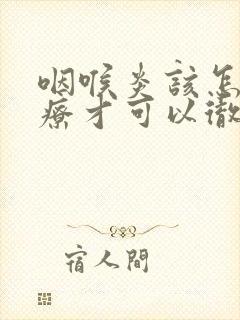 咽喉炎該怎
療才可以徹
宿人間